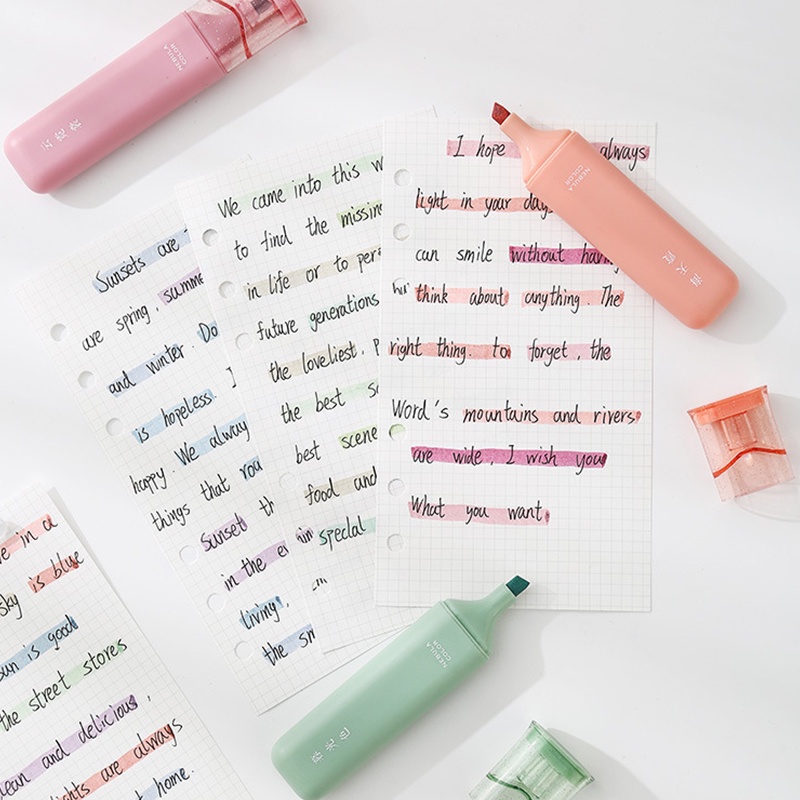 I hope always
light in your days
can smile without having
think about anything. The
right thing. to forget, the
Word's mountains and rivers
are wide, I wish you
What you want.
We came into this w
to find the missin
in life or to per
future generations
the loveliest. P
the best so
best scene
food and
special
Sunsets are
are spring, summe
and winter. Do
is hopeless. I
happy. We alway
things that you
Sunset th
in the ev
living,
the sm
ve in a
sky is blue
sun is good
the street stores
lean and delicious,
lights are always
t home.
NEBULA
COLOR
NEBULA
COLOR
NEBULA
COLOR